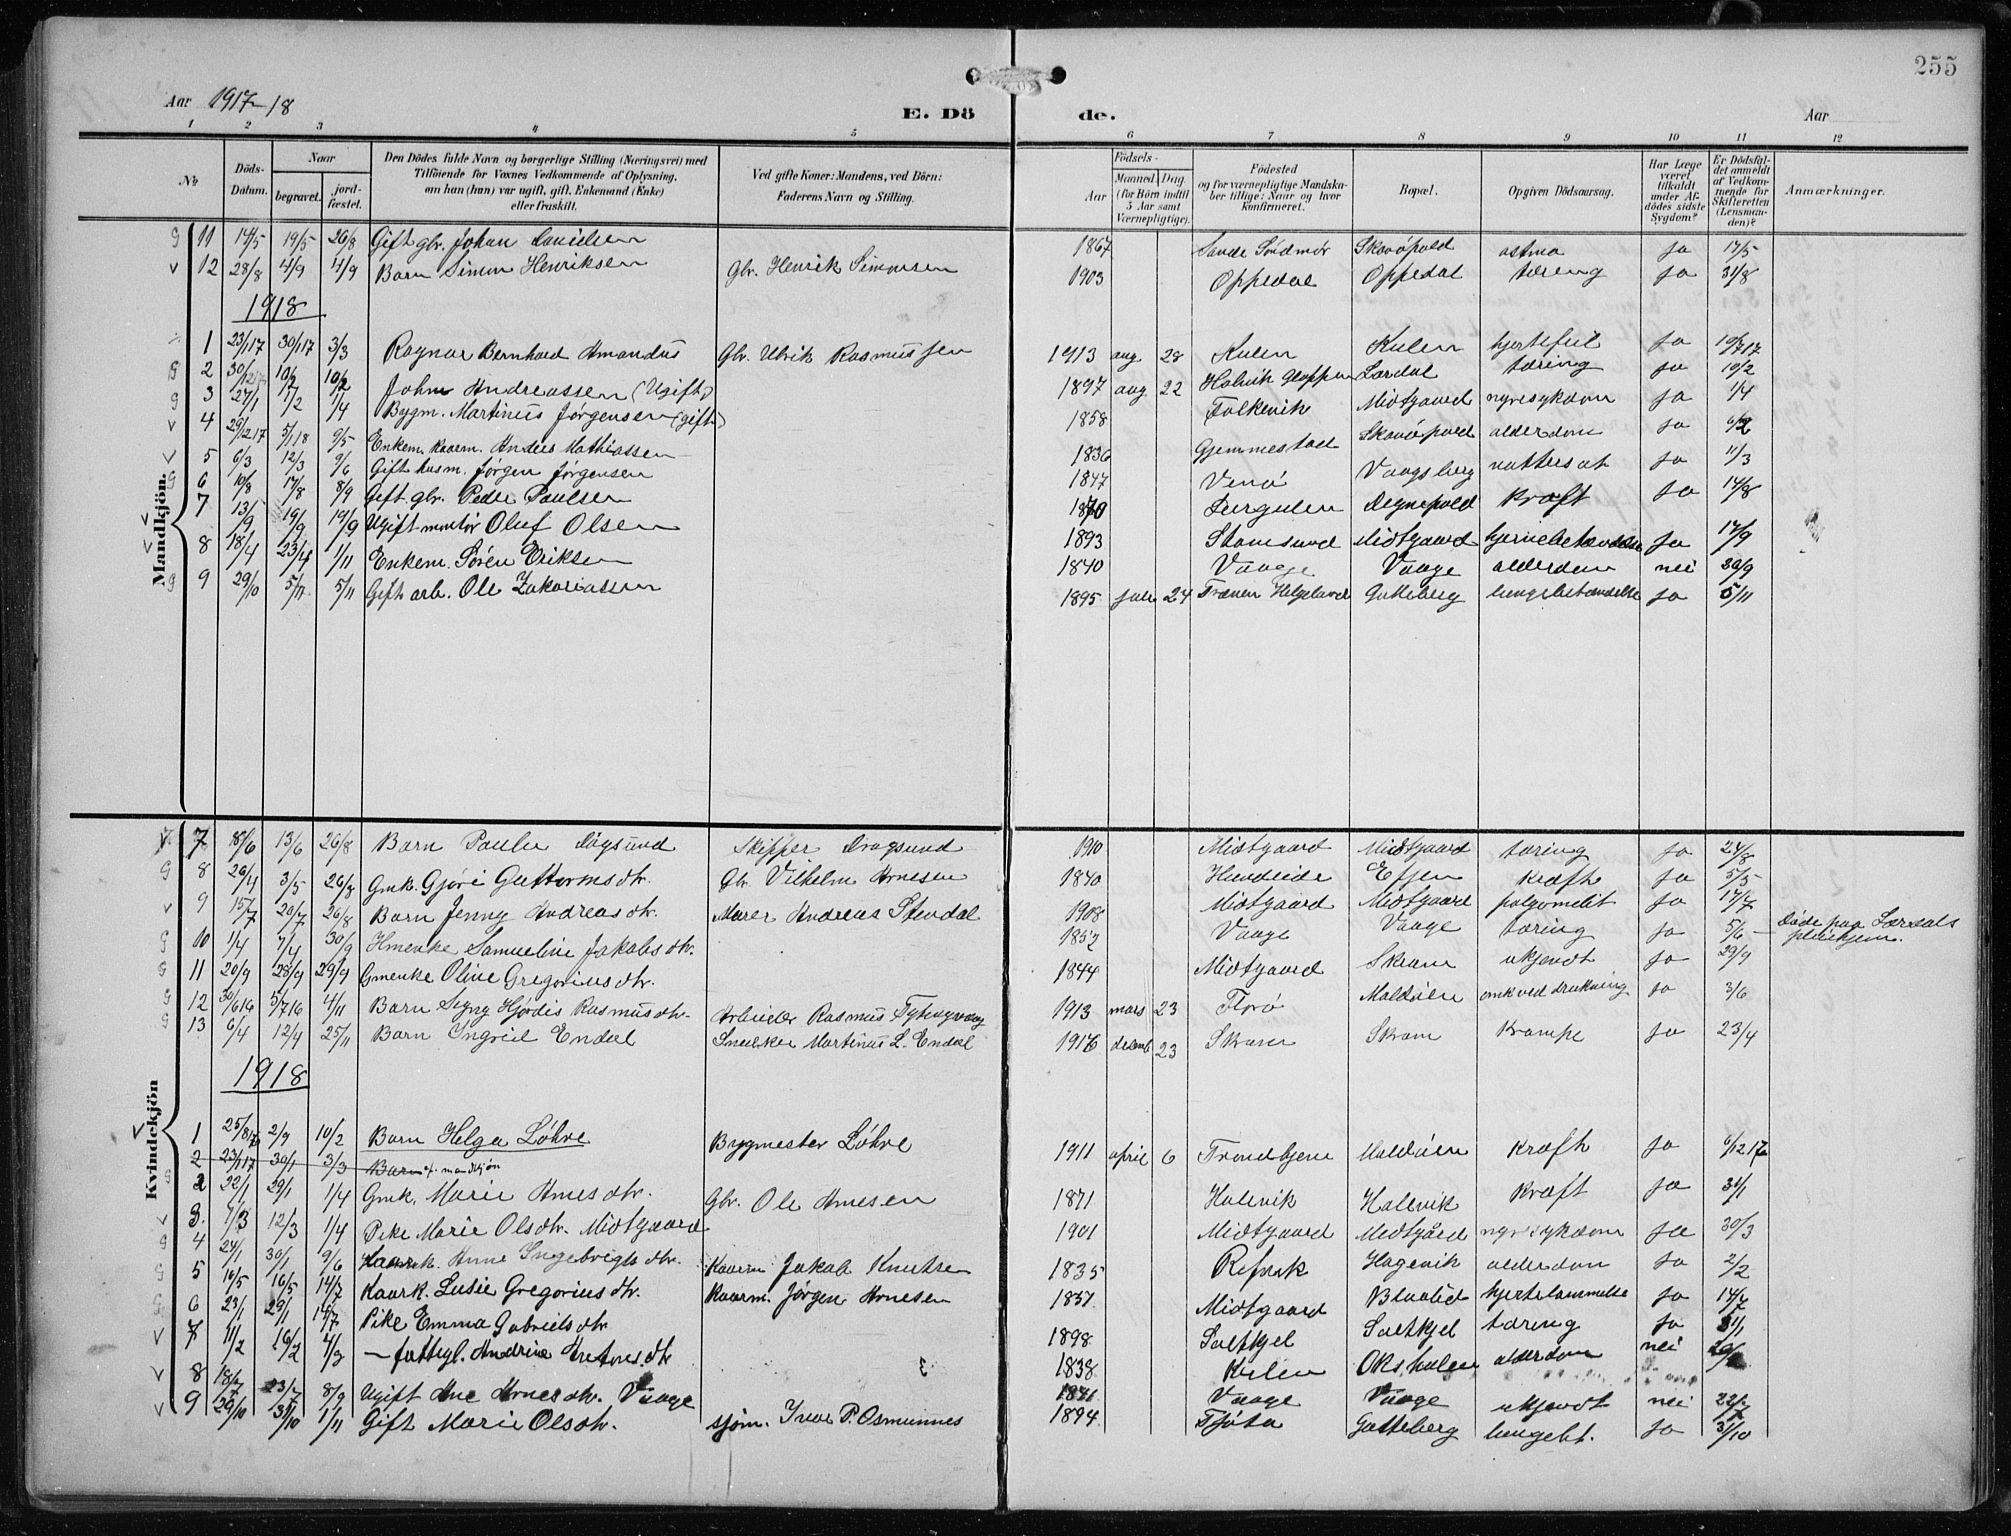 255
Aar 1917-18
E. Dö de.
Aar
1 2 3 4 5 6 7 8 9 10 11 12
№
Döds-Datum.
Naar
begravet.
jordfæstet.
Den Dödes fulde Navn og borgerlige Stilling (Næringsvei) med Tilföiende for Voxnes Vedkommende af Oplysning, om han (hun) var ugift, gift, Enkemand (Enke) eller fraskilt.
Ved gifte Koner: Mandens, ved Börn: Faderens Navn og Stilling.
Födsels-
Aar
Maaned. Dag.
(for Börn indtil 5 Aar samt Værnepligtige).
Födested og for værnepligtige Mandskaber tillige: Naar og hvor konfirmeret.
Bopæl.
Opgiven Dödsaarsag.
Har Læge været tilkaldt under Afdödes sidste Sygdom?
Er Dödsfaldet anmeldt af Vedkommende for Skifteretten (Lensmanden)?
Anmærkninger.
Mandkjön.
11 14/5 19/5 26/8 Gift gbr. Johan Danielsen 1867 Sande Söndmör Skavöpold astma ja 17/5
12 28/8 4/9 4/9 Barn Simon Henriksen Gbr. Henrik Simonsen 1903 Oppedal Oppedal tæring ja 31/8
1918
1 23/1 17 30/1 17 3/3 Ragnar Bernhard Amandus Gbr. Ulrik Rasmussen 1913 aug. 28 Kulen Kulen hjertefeil ja
2 10/2 10/2 John Andreassen (Ugift) 1897 aug 22 Halvik Gloppen Lærdal tæring ja 10/2
3 27/1 1/2 1/4 Bygm. Martinus Jørgensen (gift) 1858 Falkevik Midtgaard nyresykdom ja 1/4
4 29/12 17 5/1 18 9/5 Enkem. kaarm. Anders Mathiassen 1836 Gjemmestad Skavöpold alderdom ja 6/2
5 6/3 12/3 9/6 Gift husm. Jørgen Jørgensen 1847 Venö Vaagsberg nattersot ja 11/3
6 10/8 17/8 8/9 Gift gbr. Peder Paulsen 1870 Degnepold Kræft ja 14/8
7 13/9 19/9 19/9 Ugift montör Oluf Olsen 1893 Stamsund Midtgaard hjernebetændelse ja 17/9
8 18/4 23/4 1/11 Enkem. Sören Eriksen 1840 Vaage Vaage alderdom nei 20/9
9 29/10 5/11 5/11 Gift arb. Ole Zakariassen 1895 juli 24 Trænen Helgeland Gatteberg lungebetændelse ja 5/11
Kvindekjön
7 8/6 13/6 26/8 Barn Paula Dagsund Skipper Dragsund 1910 Midtgaard Midtgaard tæring ja 24/8
8 26/4 3/5 26/8 Gmk. Gjöri Guttormsdtr. Gbr. Vilhelm Arnesen 1840 Hundeide Effen kræft ja 5/5
9 15/7 20/7 26/8 Barn Jenny Andreasdtr. Murer Andreas Stendal 1908 Midtgaard Midtgaard polyomelit ja 17/7
10 1/4 7/4 30/9 Hmenke Samueline Jakobsdtr. 1852 Vaage Vaage tæring ja 5/6 — Döde paa Lærdals pleiehjem.
11 20/9 28/9 29/9 Gmenke Oline Gregoriusdtr. 1844 Midtgaard Skram ukjendt ja 29/9
12 30/6 16 5/7 16 4/11 Barn Sygny Hjördis Rasmusdtr. Arbeider Rasmus 1913 mars 23 Florö Maldöen omk ved drukning ja 3/6
13 6/4 12/4 25/11 Barn Ingrid Endal Snedker Martinus L. Endal 1916 decemb 23 Skram Skram Krampe ja 23/4
1918
1 25/8 17 2/9 10/2 Barn Helga Löhre Bygmester Löhre 1911 april 6 Trondhjem Maldöen Kræft ja 6/12 17
2 23/1 17 30/1 3/3 Barn af mandkjøn
2 22/1 29/1 1/4 Gmk. Marie Arnesdtr. Gbr. Ole Arnesen 1871 Halsvik Halsvik Kræft ja 31/1
3. 1/3 12/3 1/4 Pike Marie Olsdtr. Midtgaard 1901 Midtgaard Midtgård nyresykdom ja 30/3
4 24/1 30/1 9/6 Kaark. Anne Ingebrigtsdtr. Kaarm Jakob Knutsen 1835 Refvik Hagevik alderdom ja 2/2
5 10/5 16/5 14/7 Kaark. Lusie Gregoriusdtr. Kaarm. Jørgen Arnesen 1857. Midtgaard Blaalid hjertelammelse ja
6 23/1 29/1 14/7 Pike Emma Gabrielsdtr. 1898 Saltkjel Saltkjel tæring ja 31/1
7 11/2 16/2 4/3 — fattigl. Andrine Aretonsdtr 1838 Kulen Oksholen alderdom nei
8 18/7 23/7 8/9 Ugift Ane Arnesdtr. Vaage 1841 Vaage Vaage ukjendt nei 22/7
9 26/10 31/10 1/11 Gift Marie Olsdtr. sjöm. Ivar P. Osmunnes 1894. Tjöta Gatteberg lungebt. ja 31/10